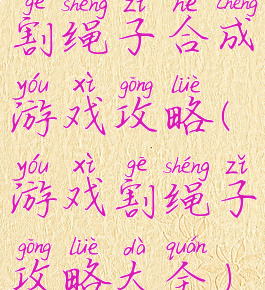 gē shéng zǐ hé chéng
割绳子合成
yóu xì gōng lüè
游戏攻略(
yóu xì gē shéng zǐ
游戏割绳子
gōng lüè dà quán
攻略大全)